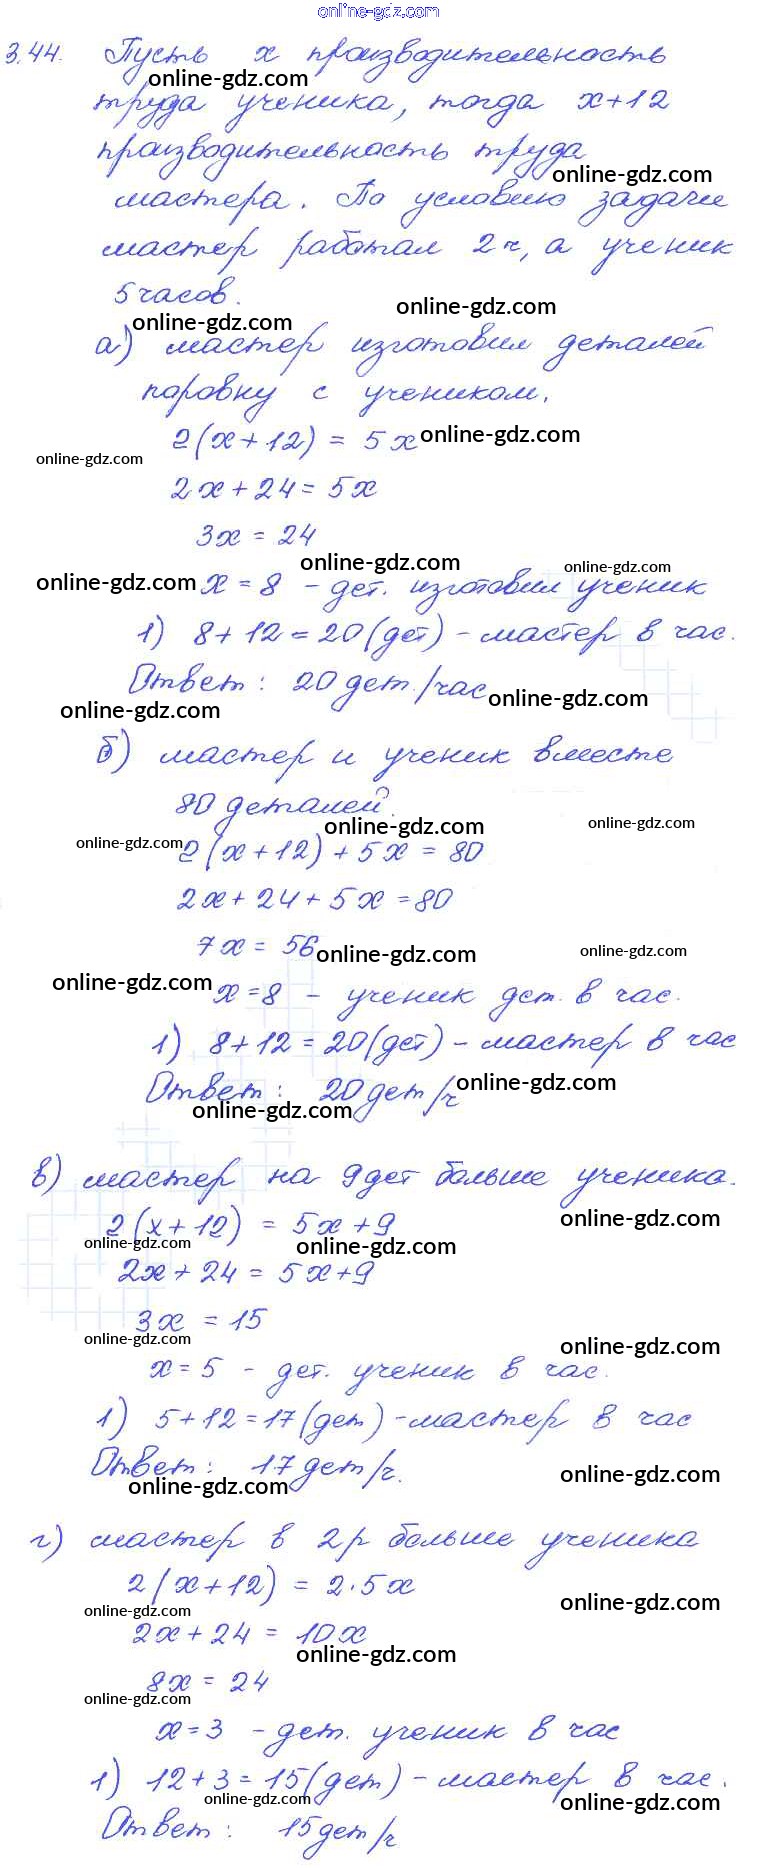 online-gdz.com
3.44. Пусть x производительность
online-gdz.com
труда ученика, тогда x+12
производительность труда
online-gdz.com
мастера. По условию задачи
мастер работал 2 ч, а ученик
5 часов.
online-gdz.com
online-gdz.com
а) мастер изготовил деталей
поровну с учеником.
2(x+12) = 5x online-gdz.com
online-gdz.com
2x+24 = 5x
3x = 24
online-gdz.com online-gdz.com
online-gdz.com x = 8 - дет. изготовил ученик
1) 8+12 = 20(дет) - мастер в час.
Ответ: 20 дет./час online-gdz.com
online-gdz.com
б) мастер и ученик вместе
80 деталей.
online-gdz.com online-gdz.com
online-gdz.com 2(x+12)+5x = 80
2x+24+5x = 80
7x = 56 online-gdz.com online-gdz.com
online-gdz.com x=8 - ученик дет. в час.
1) 8+12 = 20(дет) - мастер в час
Ответ: 20 дет/ч online-gdz.com
online-gdz.com
в) мастер на 9 дет больше ученика.
2(x+12) = 5x+9 online-gdz.com
online-gdz.com online-gdz.com
2x+24 = 5x+9
3x = 15
online-gdz.com online-gdz.com
x=5 - дет. ученик в час.
1) 5+12=17(дет) - мастер в час
Ответ: 17 дет/ч.
online-gdz.com online-gdz.com
г) мастер в 2р больше ученика
2(x+12) = 2·5x
online-gdz.com online-gdz.com
2x+24 = 10x
online-gdz.com
8x = 24
online-gdz.com
x=3 - дет. ученик в час
1) 12+3=15(дет) - мастер в час.
online-gdz.com online-gdz.com
Ответ: 15 дет/ч